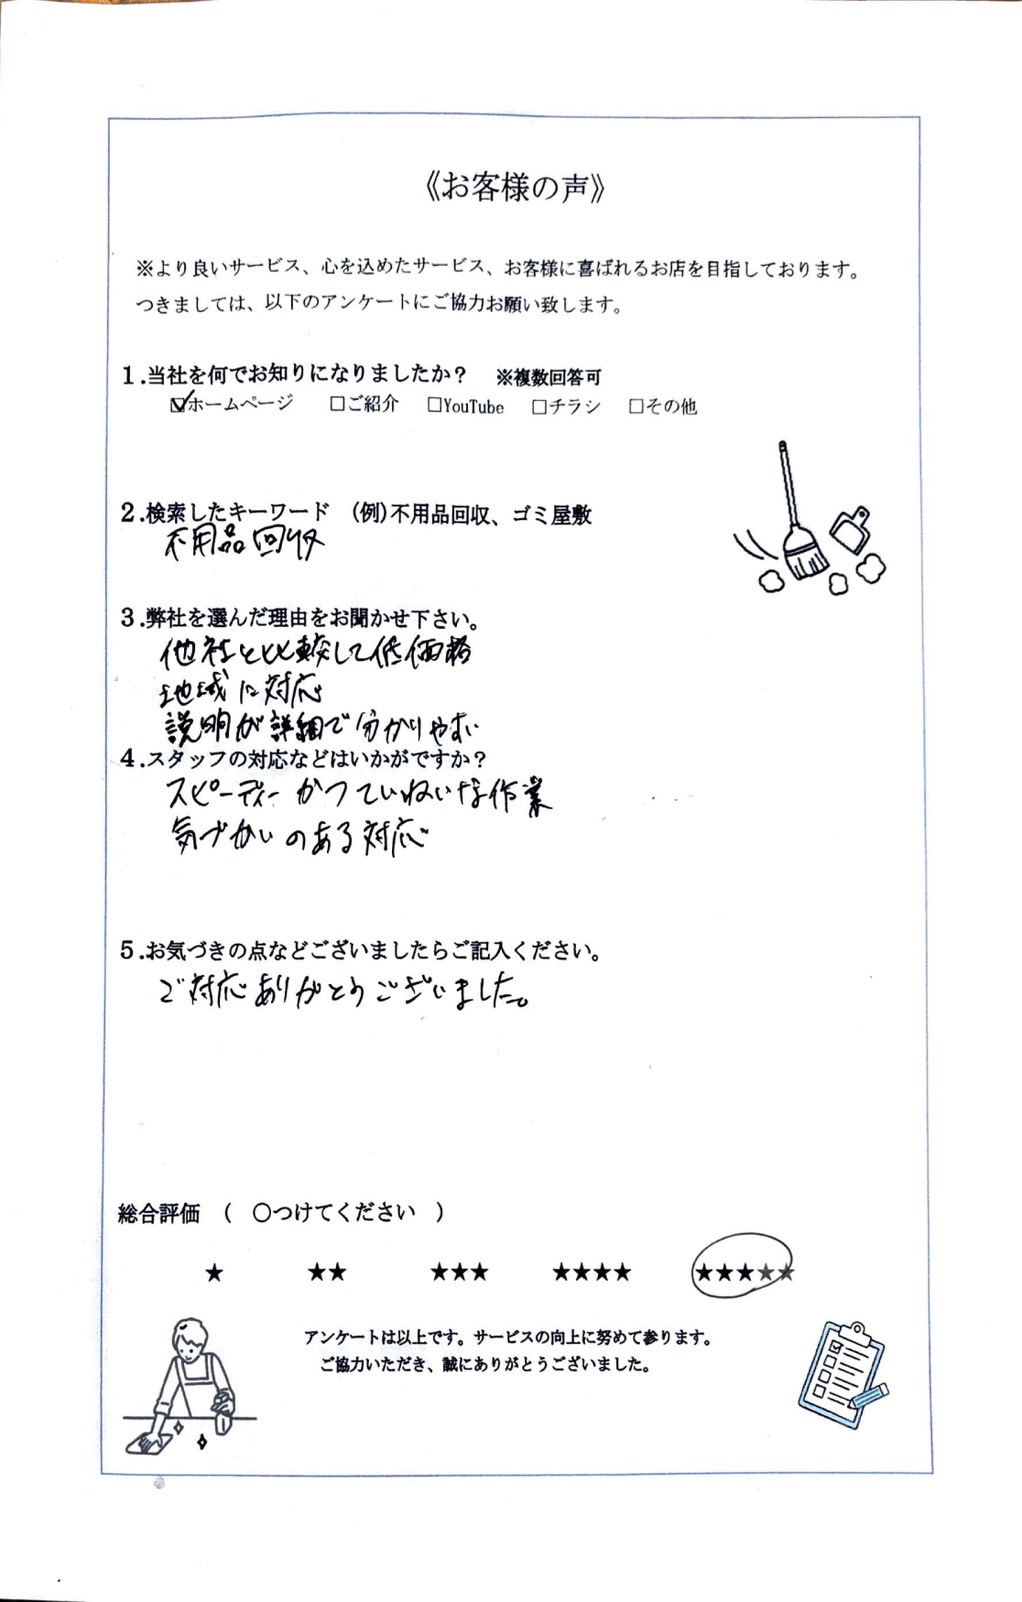 《お客様の声》
※より良いサービス、心を込めたサービス、お客様に喜ばれるお店を目指しております。
つきましては、以下のアンケートにご協力お願い致します。
1.当社を何でお知りになりましたか？　※複数回答可
☑ホームページ　□ご紹介　□YouTube　□チラシ　□その他
2.検索したキーワード　(例)不用品回収、ゴミ屋敷
不用品回収
3.弊社を選んだ理由をお聞かせ下さい。
他社と比較して低価格
地域に対応
説明が詳細で分かりやすい
4.スタッフの対応などはいかがですか？
スピーディーかつていねいな作業
気づかいのある対応
5.お気づきの点などございましたらご記入ください。
ご対応ありがとうございました。
総合評価　（　〇つけてください　）
★　★★　★★★　★★★★　★★★★★
アンケートは以上です。サービスの向上に努めて参ります。
ご協力いただき、誠にありがとうございました。